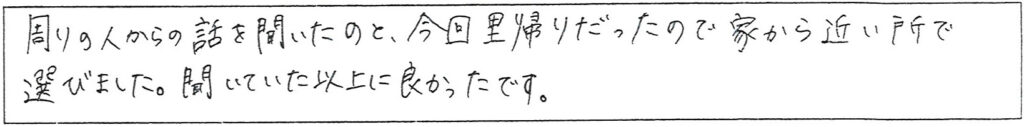 周りの人からの話を聞いたのと、今回里帰りだったので家から近い所で
選びました。聞いていた以上に良かったです。